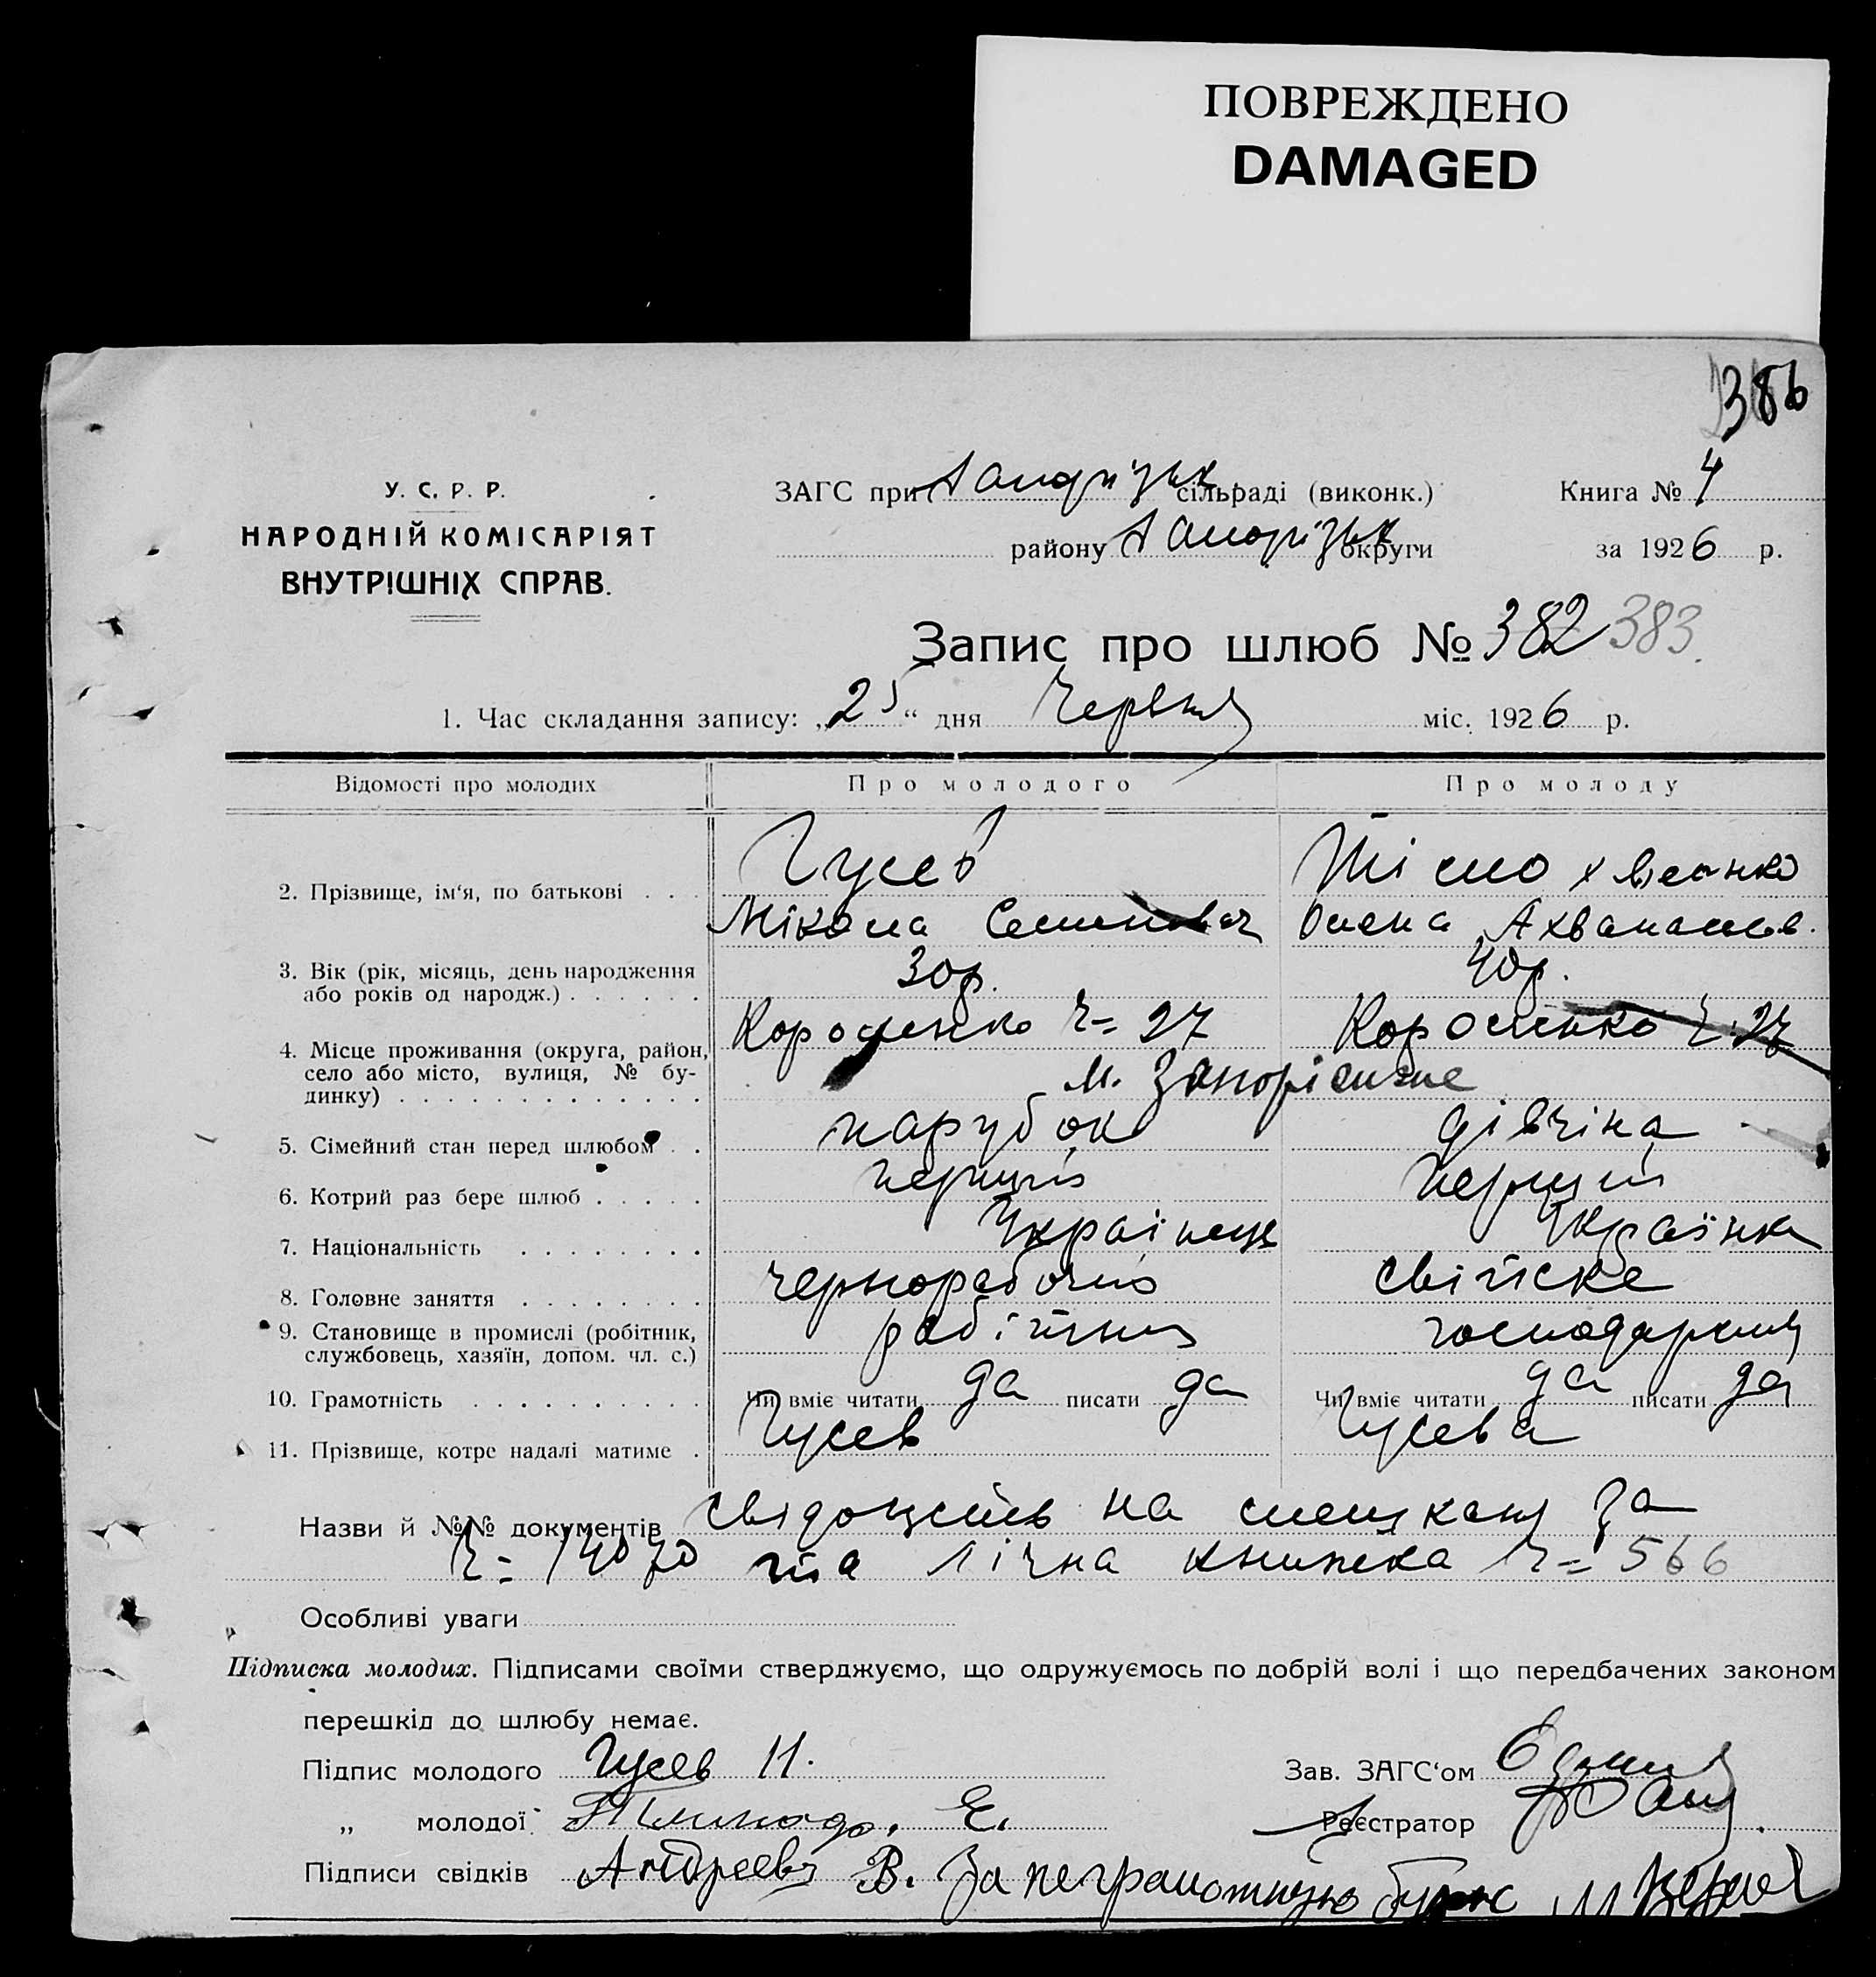 ПОВРЕЖДЕНО
DAMAGED
386
У. С. Р. Р.
НАРОДНІЙ КОМІСАРІЯТ
ВНУТРІШНІХ СПРАВ.
ЗАГС при Запорізьк сільраді (виконк.) Книга № 4
району Запорізьк округи за 1926 р.
Запис про шлюб № 382 383.
1. Час складання запису: „25“ дня Червня міс. 1926 р.
Відомості про молодих Про молодого Про молоду
2. Прізвище, ім‘я, по батькові . . . Гусев
Мікола Семенович Олена Ахванасев.
3. Вік (рік, місяць, день народження або років од народж.) . . . . . . 30р. 40р.
4. Місце проживання (округа, район, село або місто, вулиця, № будинку) . . . . . . . . . . . . . Короленко Ч= 27 Короленко Ч=27
м. Запоріжже
5. Сімейний стан перед шлюбом . . парубок дівчіна
6. Котрий раз бере шлюб . . . . . перший перший
7. Національність . . . . . . . . Українець Українка
8. Головне заняття . . . . . . . . чернорабочий свійске
9. Становище в промислі (робітник, службовець, хазяїн, допом. чл. с.) робітник господарство
10. Грамотність . . . . . . . . . . Чи вміє читати да писати да Чи вміє читати да писати да
11. Прізвище, котре надалі матиме . Гусев Гусева
Назви й №№ документів свідоцтв на мешкан за
Ч= 14070 та лічна книжека Ч= 566
Особливі уваги
Підписка молодих. Підписами своїми стверджуємо, що одружуємось по добрій волі і що передбачених законом
перешкід до шлюбу немає.
Підпис молодого Гусев Н. Зав. ЗАГС‘ом
„ молодої Е. Реєстратор
Підписи свідків Андреев В. За неграмотную